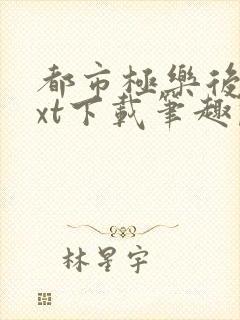 都市極樂後
xt下載筆趣
林星宇